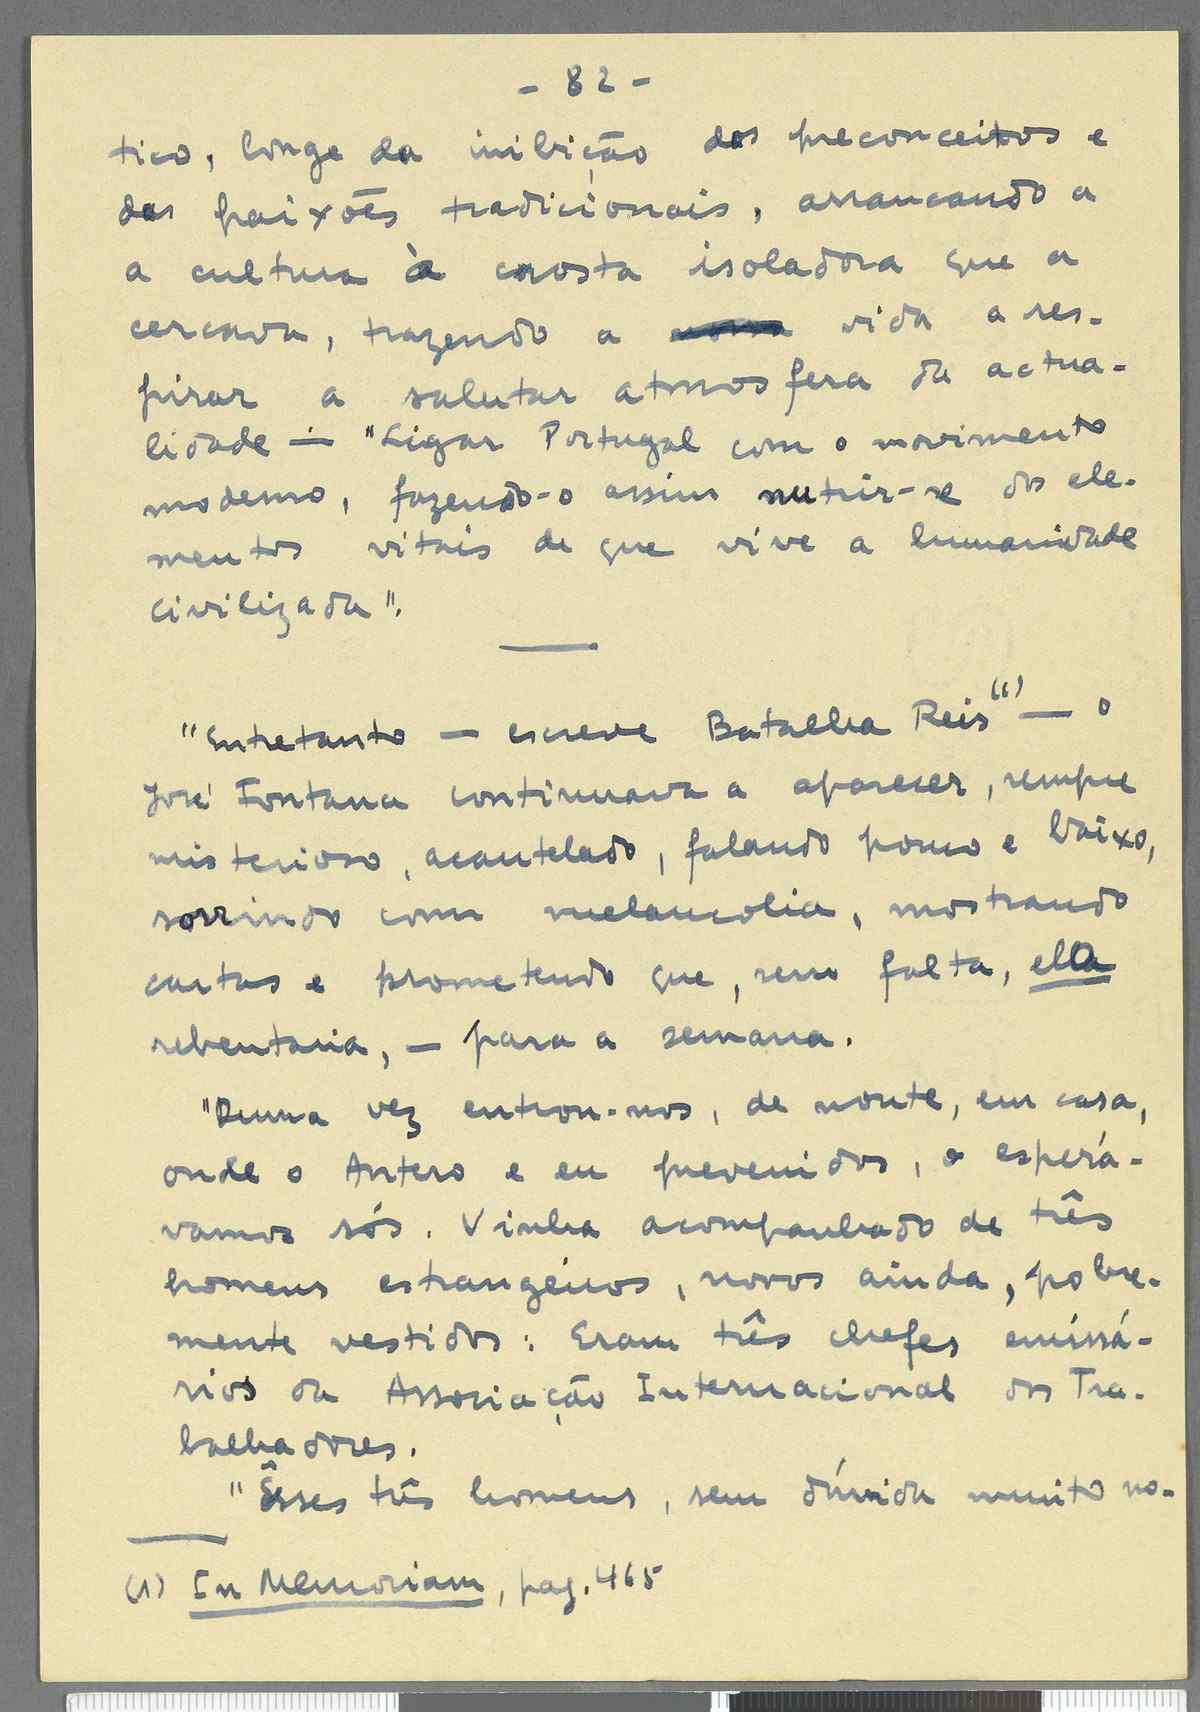 - 82 -
tico, longe da inibição dos preconceitos e
das paixões tradicionais, arrancando a
a cultura à crosta isoladora que a
cercava, trazendo a vida a res-
pirar a salutar atmosfera da actua-
lidade — "Ligar Portugal com o movimento
moderno, fazendo-o assim nutrir-se dos ele-
mentos vitais de que vive a humanidade
civilizada".
"Entretanto — escreve Batalha Reis (1) — o
José Fontana continuava a aparecer, sempre
misterioso, acautelado, falando pouco e baixo,
sorrindo com melancolia, mostrando
cartas e prometendo que, sem falta, ella
rebentaria, — para a semana.
"Duma vez entrou-nos, de noute, em casa,
onde o Antero e eu prevenidos, o esperá-
vamos sós. Vinha acompanhado de três
homens estrangeiros, novos ainda, pobre-
mente vestidos: Eram três chefes emissá-
rios da Associação Internacional dos Tra-
balhadores.
"Êsses três homens, sem dúvida muito no-
(1) In Memoriam, pag. 465